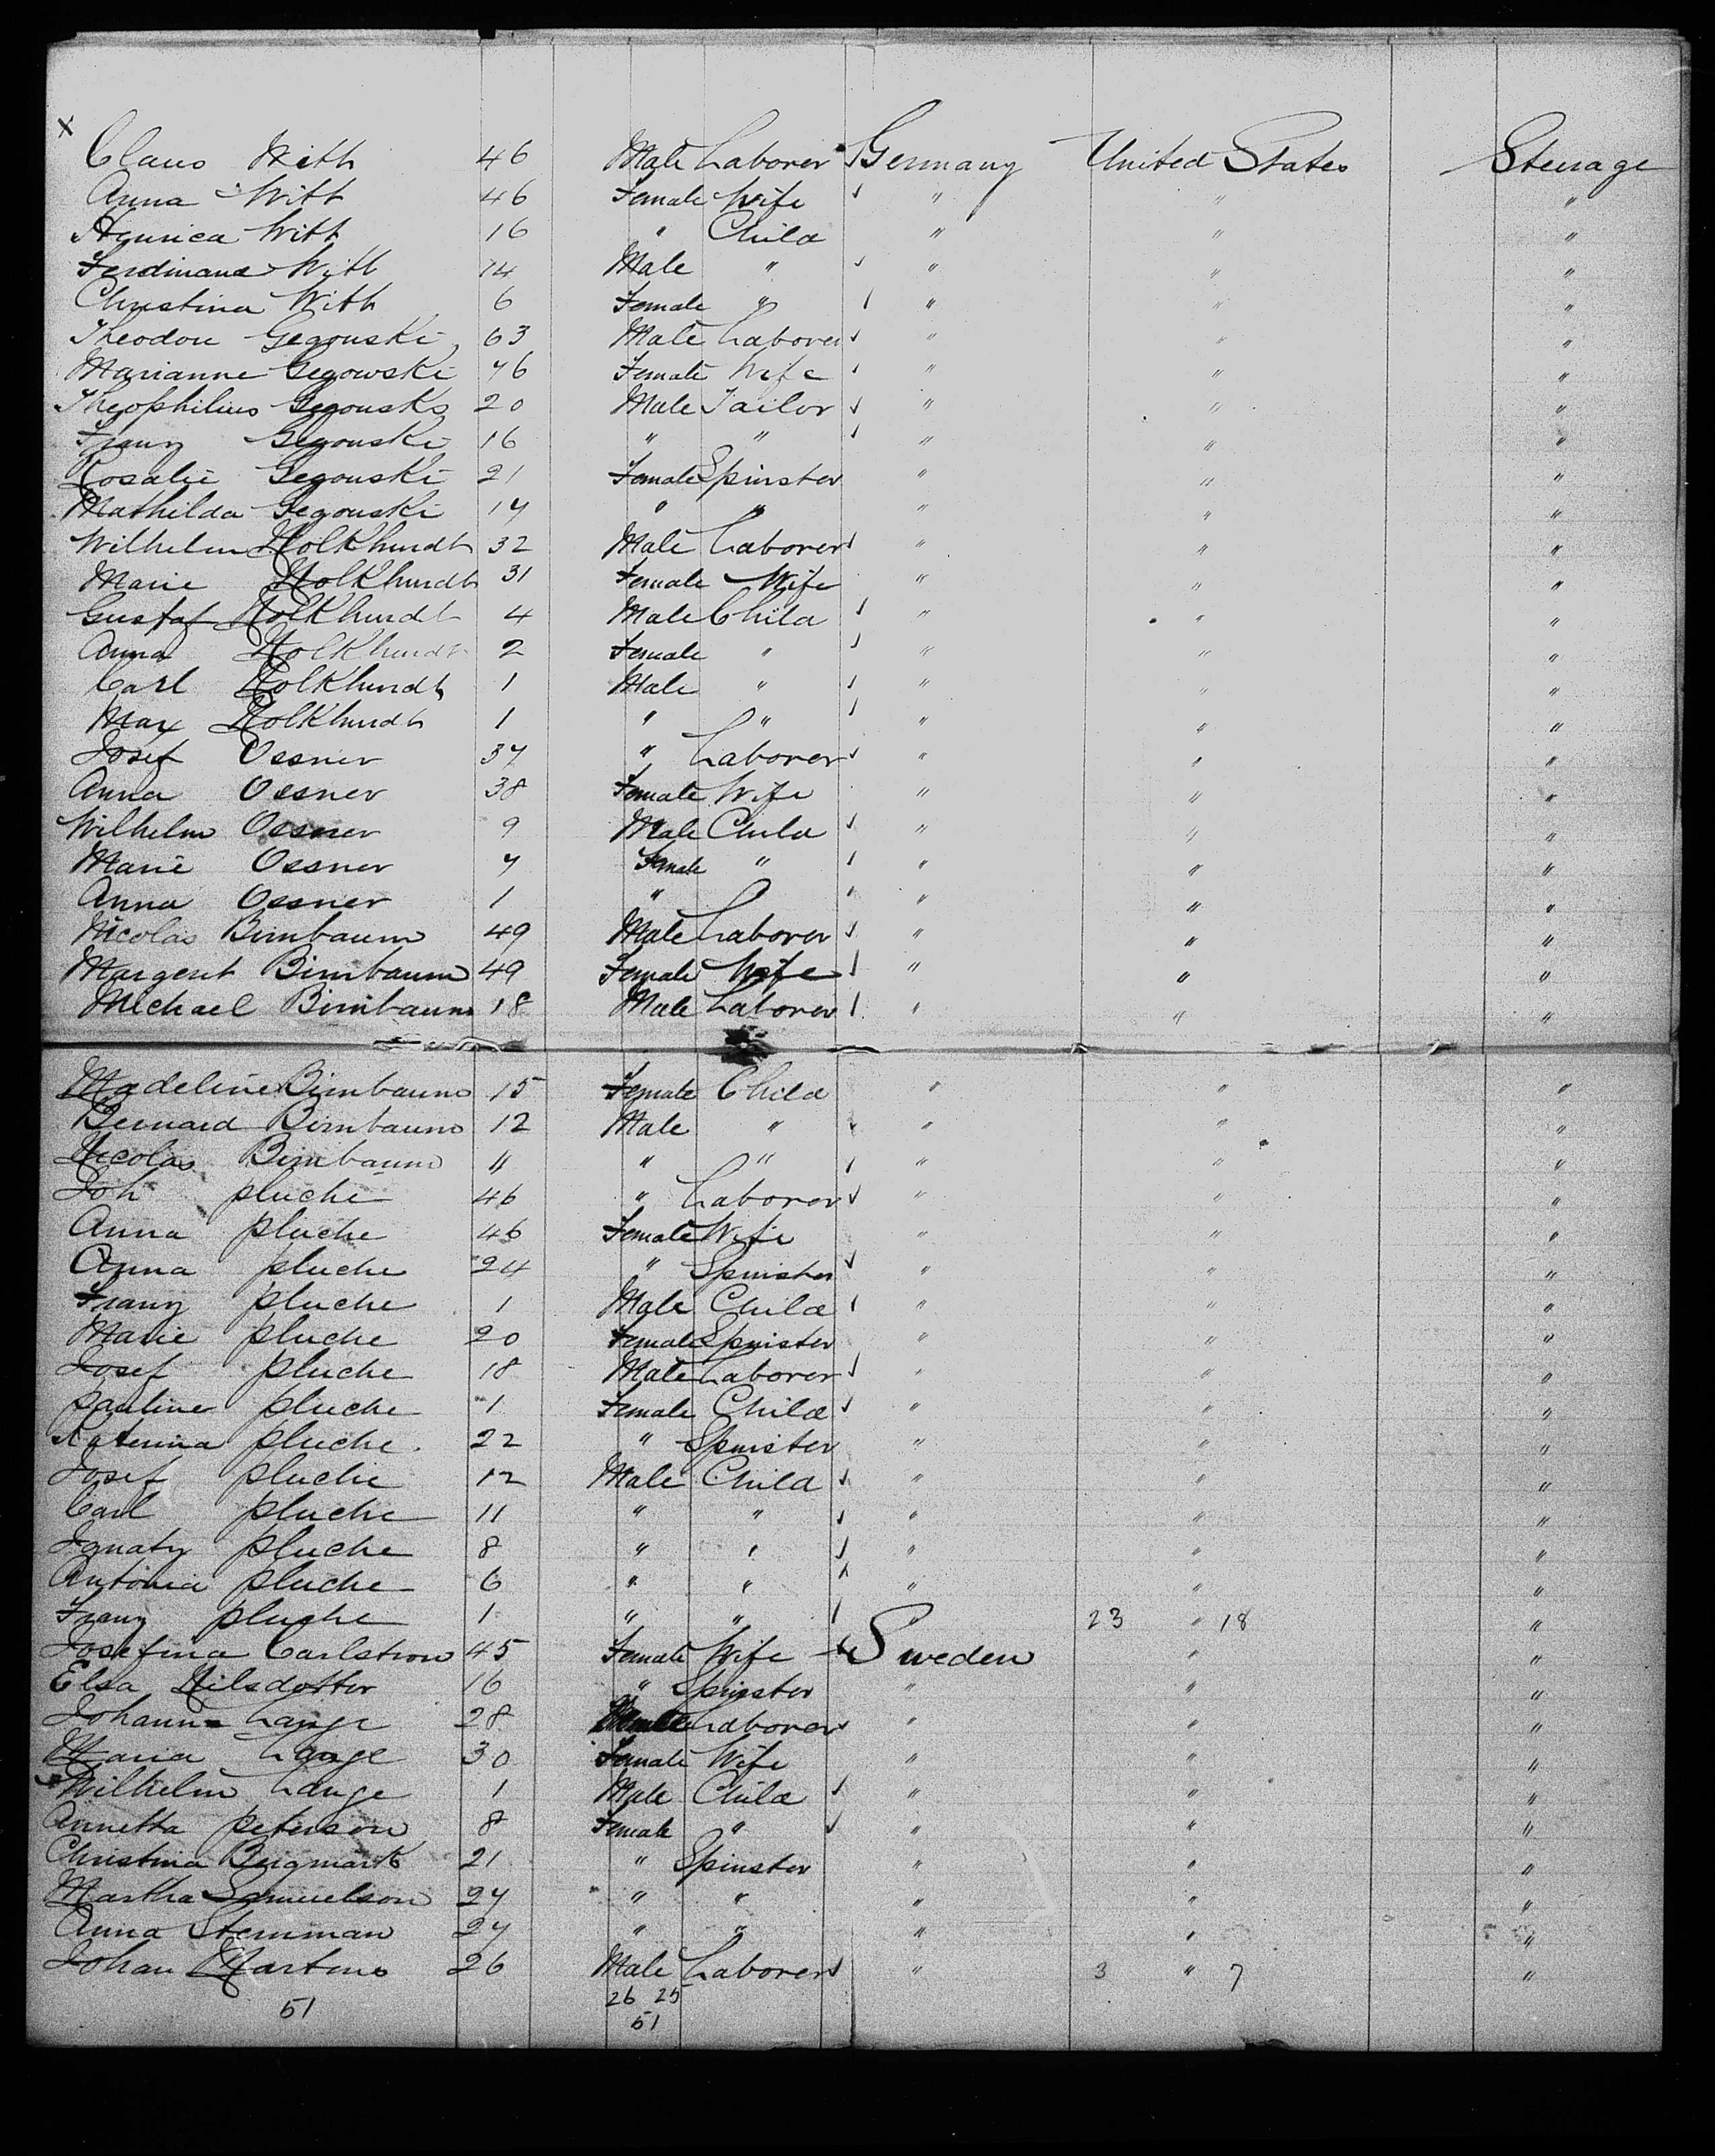 x
Claus Witt 46 Male Laborer Germany United States Steerage
Anna Witt 46 Female Wife " " "
Henrica Witt 16 " Child " " "
Ferdinand Witt 14 Male " " " "
Christina Witt 6 Female " " " "
Theodor Gegouski 63 Male Laborer " " "
Marianne Gegowski 46 Female Wife " " "
Theophilius Gegouski 20 Male Tailor " " "
Franz Gegouski 16 " " " " "
Rosalie Gegouski 21 Female Spinster " " "
Mathilda Gegouski 17 " " " " "
Wilhelm Holkhurdt 32 Male Laborer " " "
Marie Holkhurdt 31 Female Wife " " "
Gustaf Holkhurdt 4 Male Child " " "
Anna Holkhurdt 2 Female " " " "
Carl Holkhurdt 1 Male " " " "
Max Holkhurdt 1 " " " " "
Josef Ossner 37 " Laborer " " "
Anna Ossner 38 Female Wife " " "
Wilhelm Ossner 9 Male Child " " "
Marie Ossner 7 Female " " " "
Anna Ossner 1 " " " " "
Nicolas Birnbaum 49 Male Laborer " " "
Margeret Birnbaum 49 Female Wife " " "
Michael Birnbaum 18 Male Laborer " " "
Madeline Birnbaum 15 Female Child " " "
Bernard Birnbaum 12 Male " " " "
Nicolas Birnbaum 11 " " " " "
Joh pluche 46 " Laborer " " "
Anna pluche 46 Female Wife " " "
Anna pluche 24 " Spinster " " "
Franz pluche 1 Male Child " " "
Marie pluche 20 Female Spinster " " "
Josef pluche 18 Male Laborer " " "
pauline pluche 1 Female Child " " "
Katerina pluche 22 " Spinster " " "
Josef pluche 12 Male Child " " "
Carl pluche 11 " " " " "
Ignatz pluche 8 " " " " "
Antonia pluche 6 " " " " "
Franz pluche 1 " " " 23 " 18 "
Josefina Carlstrom 45 Female Wife Sweden " "
Elsa Nilsdotter 16 " Spinster " " "
Johann Lange 28 Male Laborer " " "
Maria Lange 30 Female Wife " " "
Wilhelm Lange 1 Male Child " " "
Annetta peterson 8 Female " " " "
Christina Bergmark 21 " Spinster " " "
Martha Samuelson 27 " " " " "
Anna Stenman 27 " " " " "
Johan Martins 26 Male Laborer " 3 " 7 "
51 26 25
51